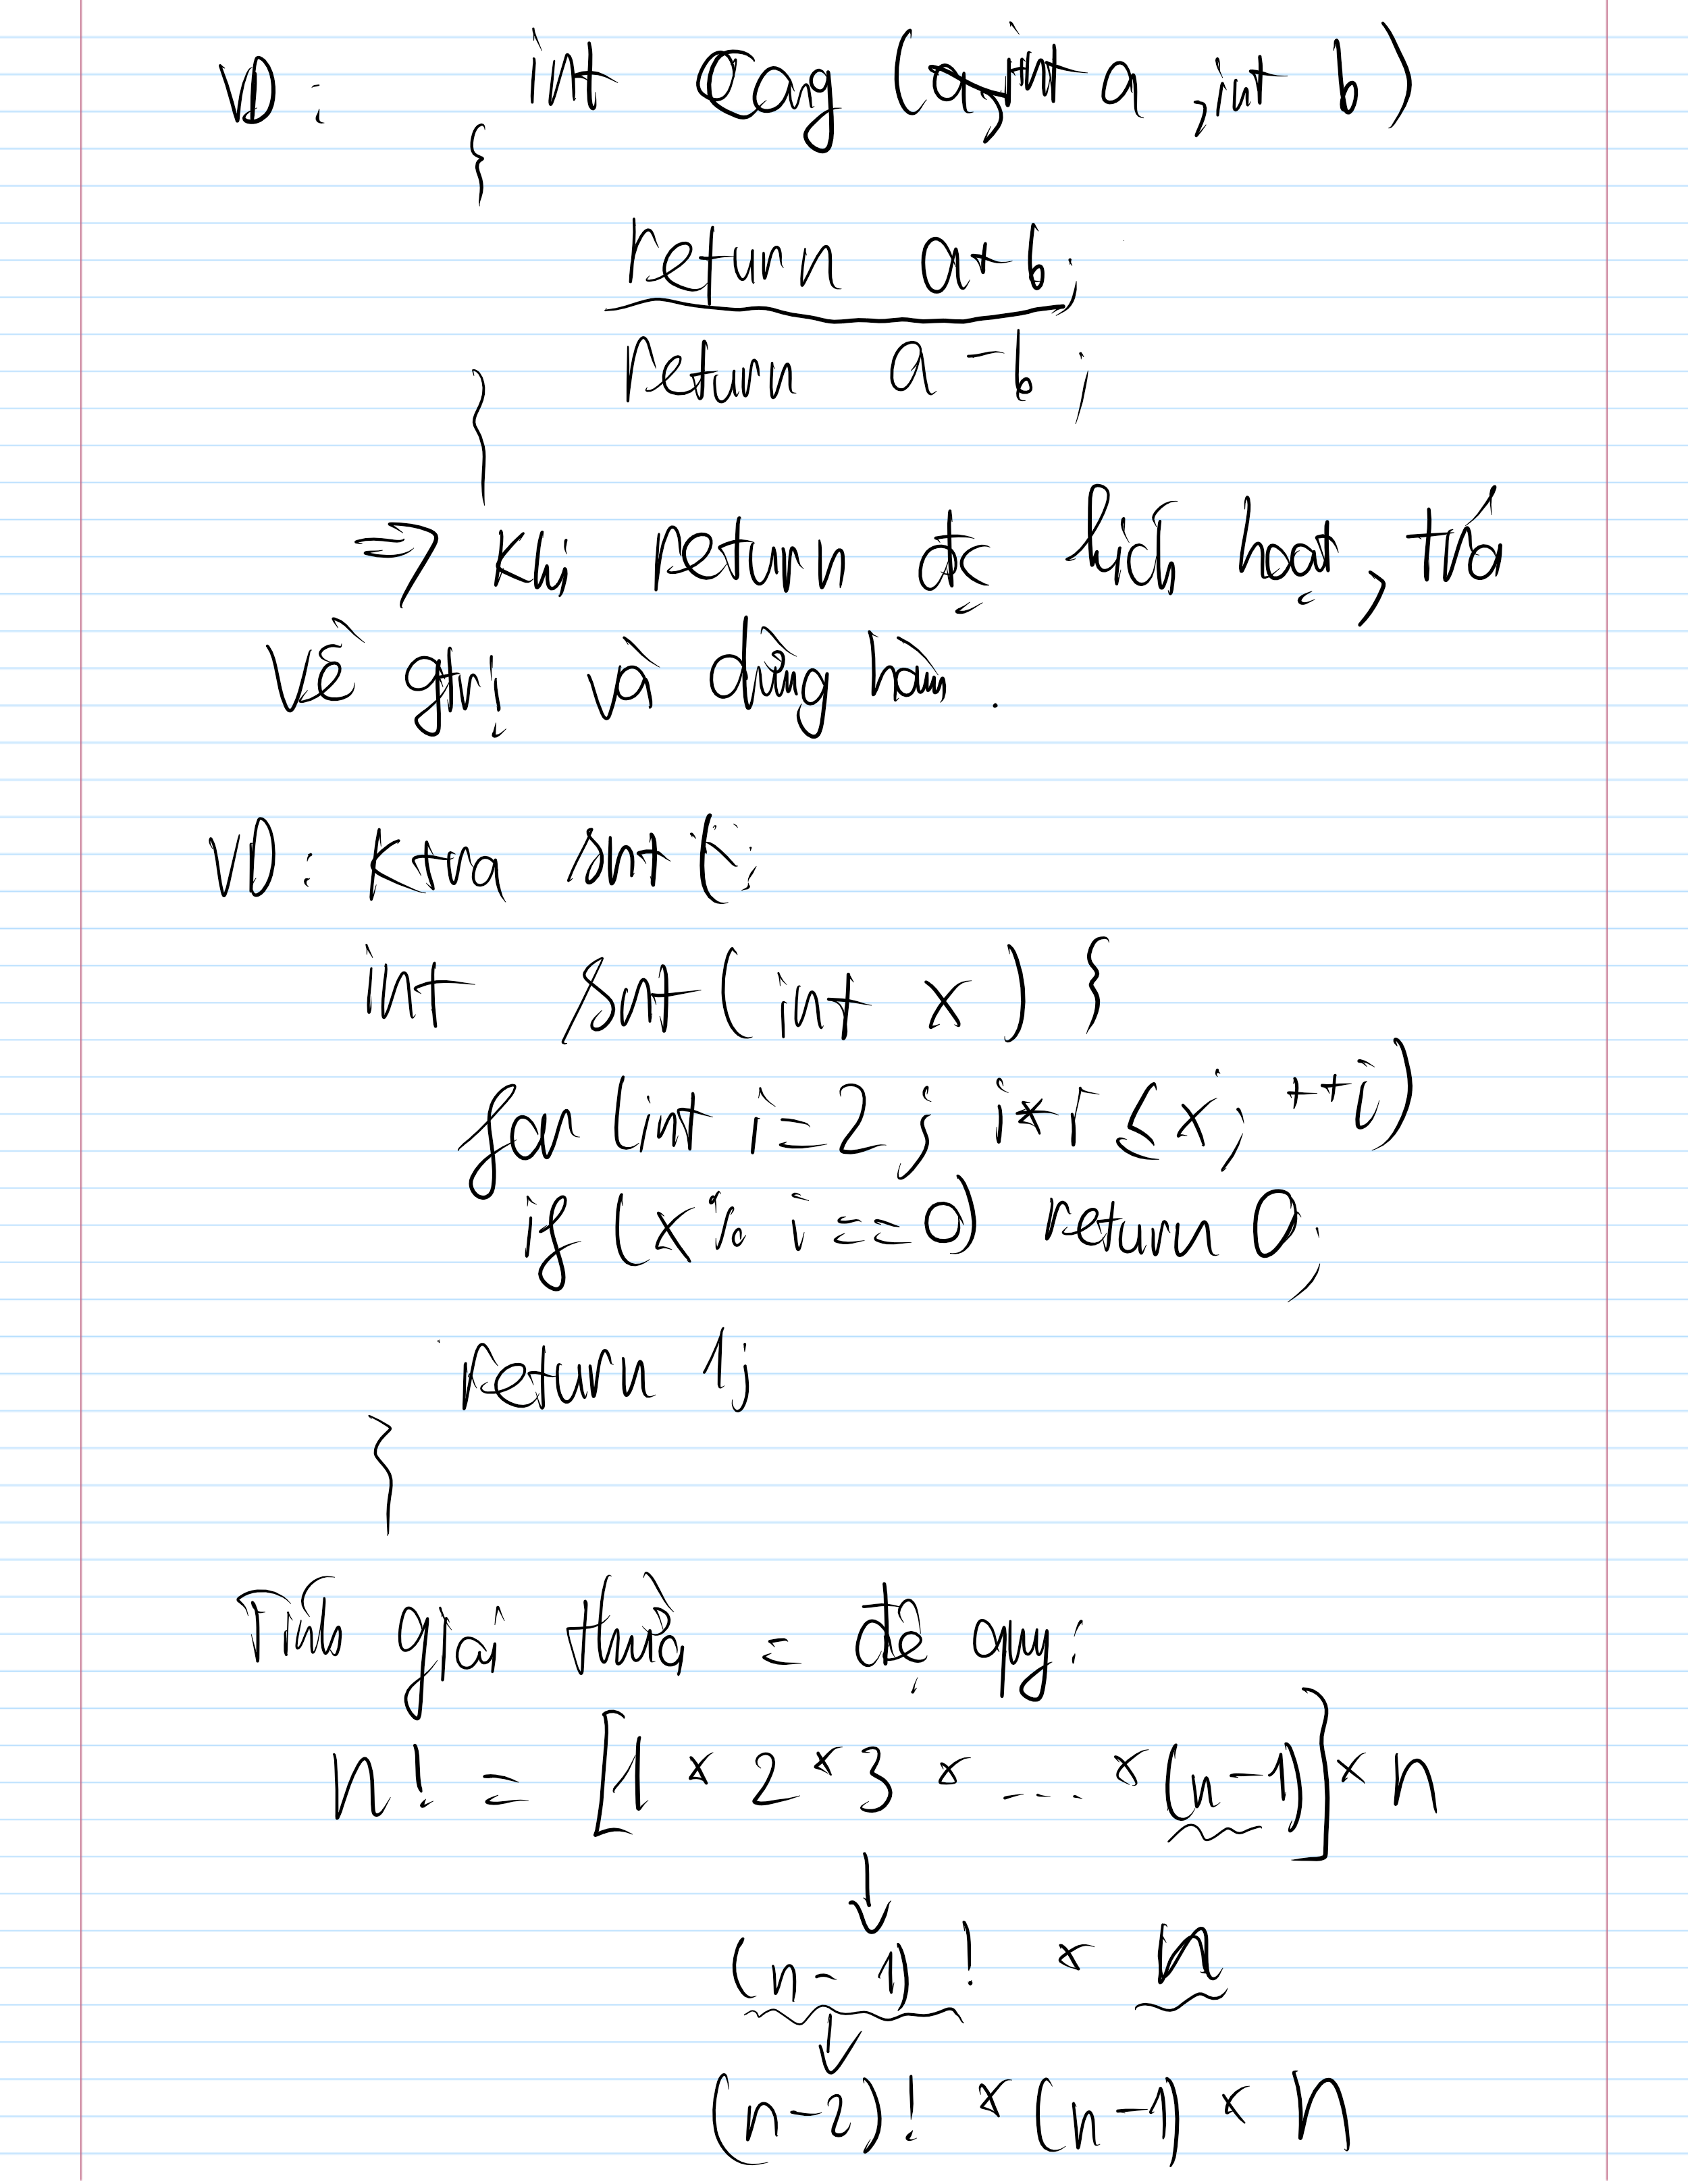 VD: int Cog (int a, int b)
{
return a+b;
return a-b;
}
=> Khi return đc kích hoạt, trả
về gtrị và dừng hàm.
VD: Ktra snt (
int snt(int x) {
for (int i=2; i*i ≤ x; ++i)
if (x% i==0) return 0;
return 1;
}
Tính giai thừa = đệ quy:
n! = [1 × 2 × 3 × .... × (n-1)] × n
↓
(n-1)! × n
↓
(n-2)! × (n-1) × n